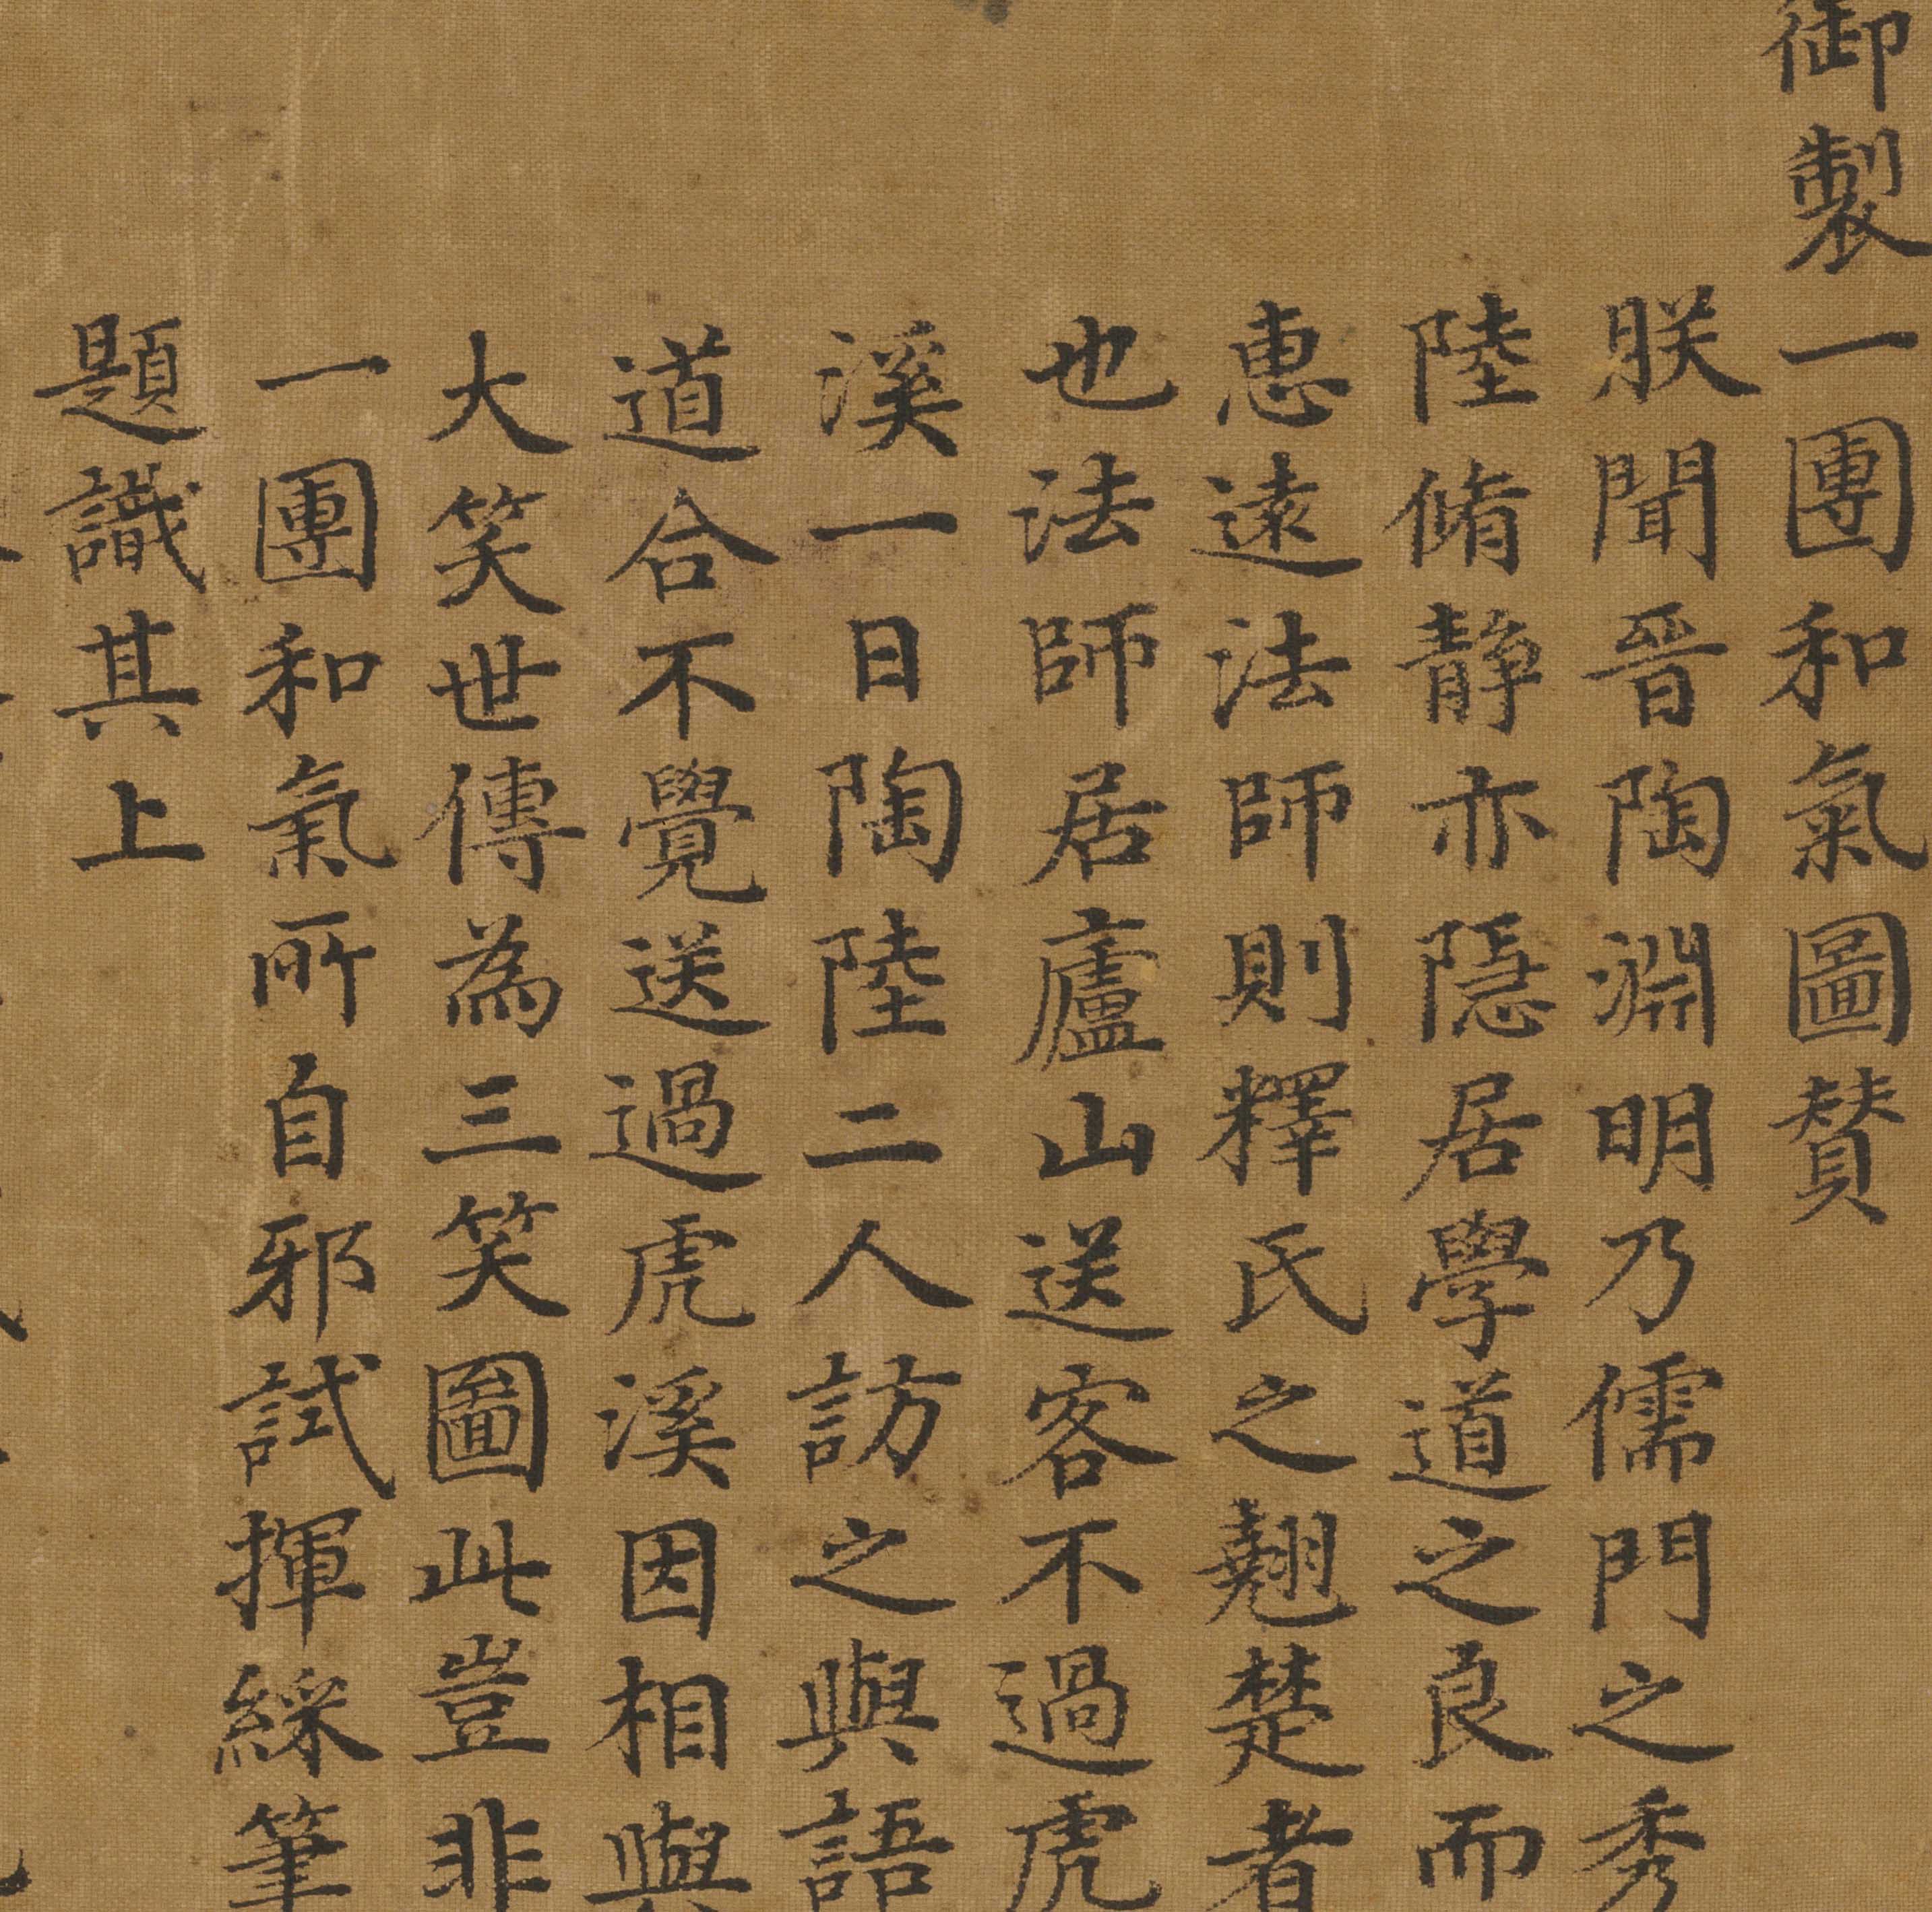 御製一團和氣圖賛
朕聞晉陶淵明乃儒門之秀
陸脩静亦隱居學道之良而
惠逺法師則釋氏之翹楚者
也法師居廬山送客不過虎
溪一日陶陸二人訪之與語
道合不覺送過虎溪因相與
大笑世傳為三笑圖此豈非
一團和氣所自邪試揮綵筆
題識其上